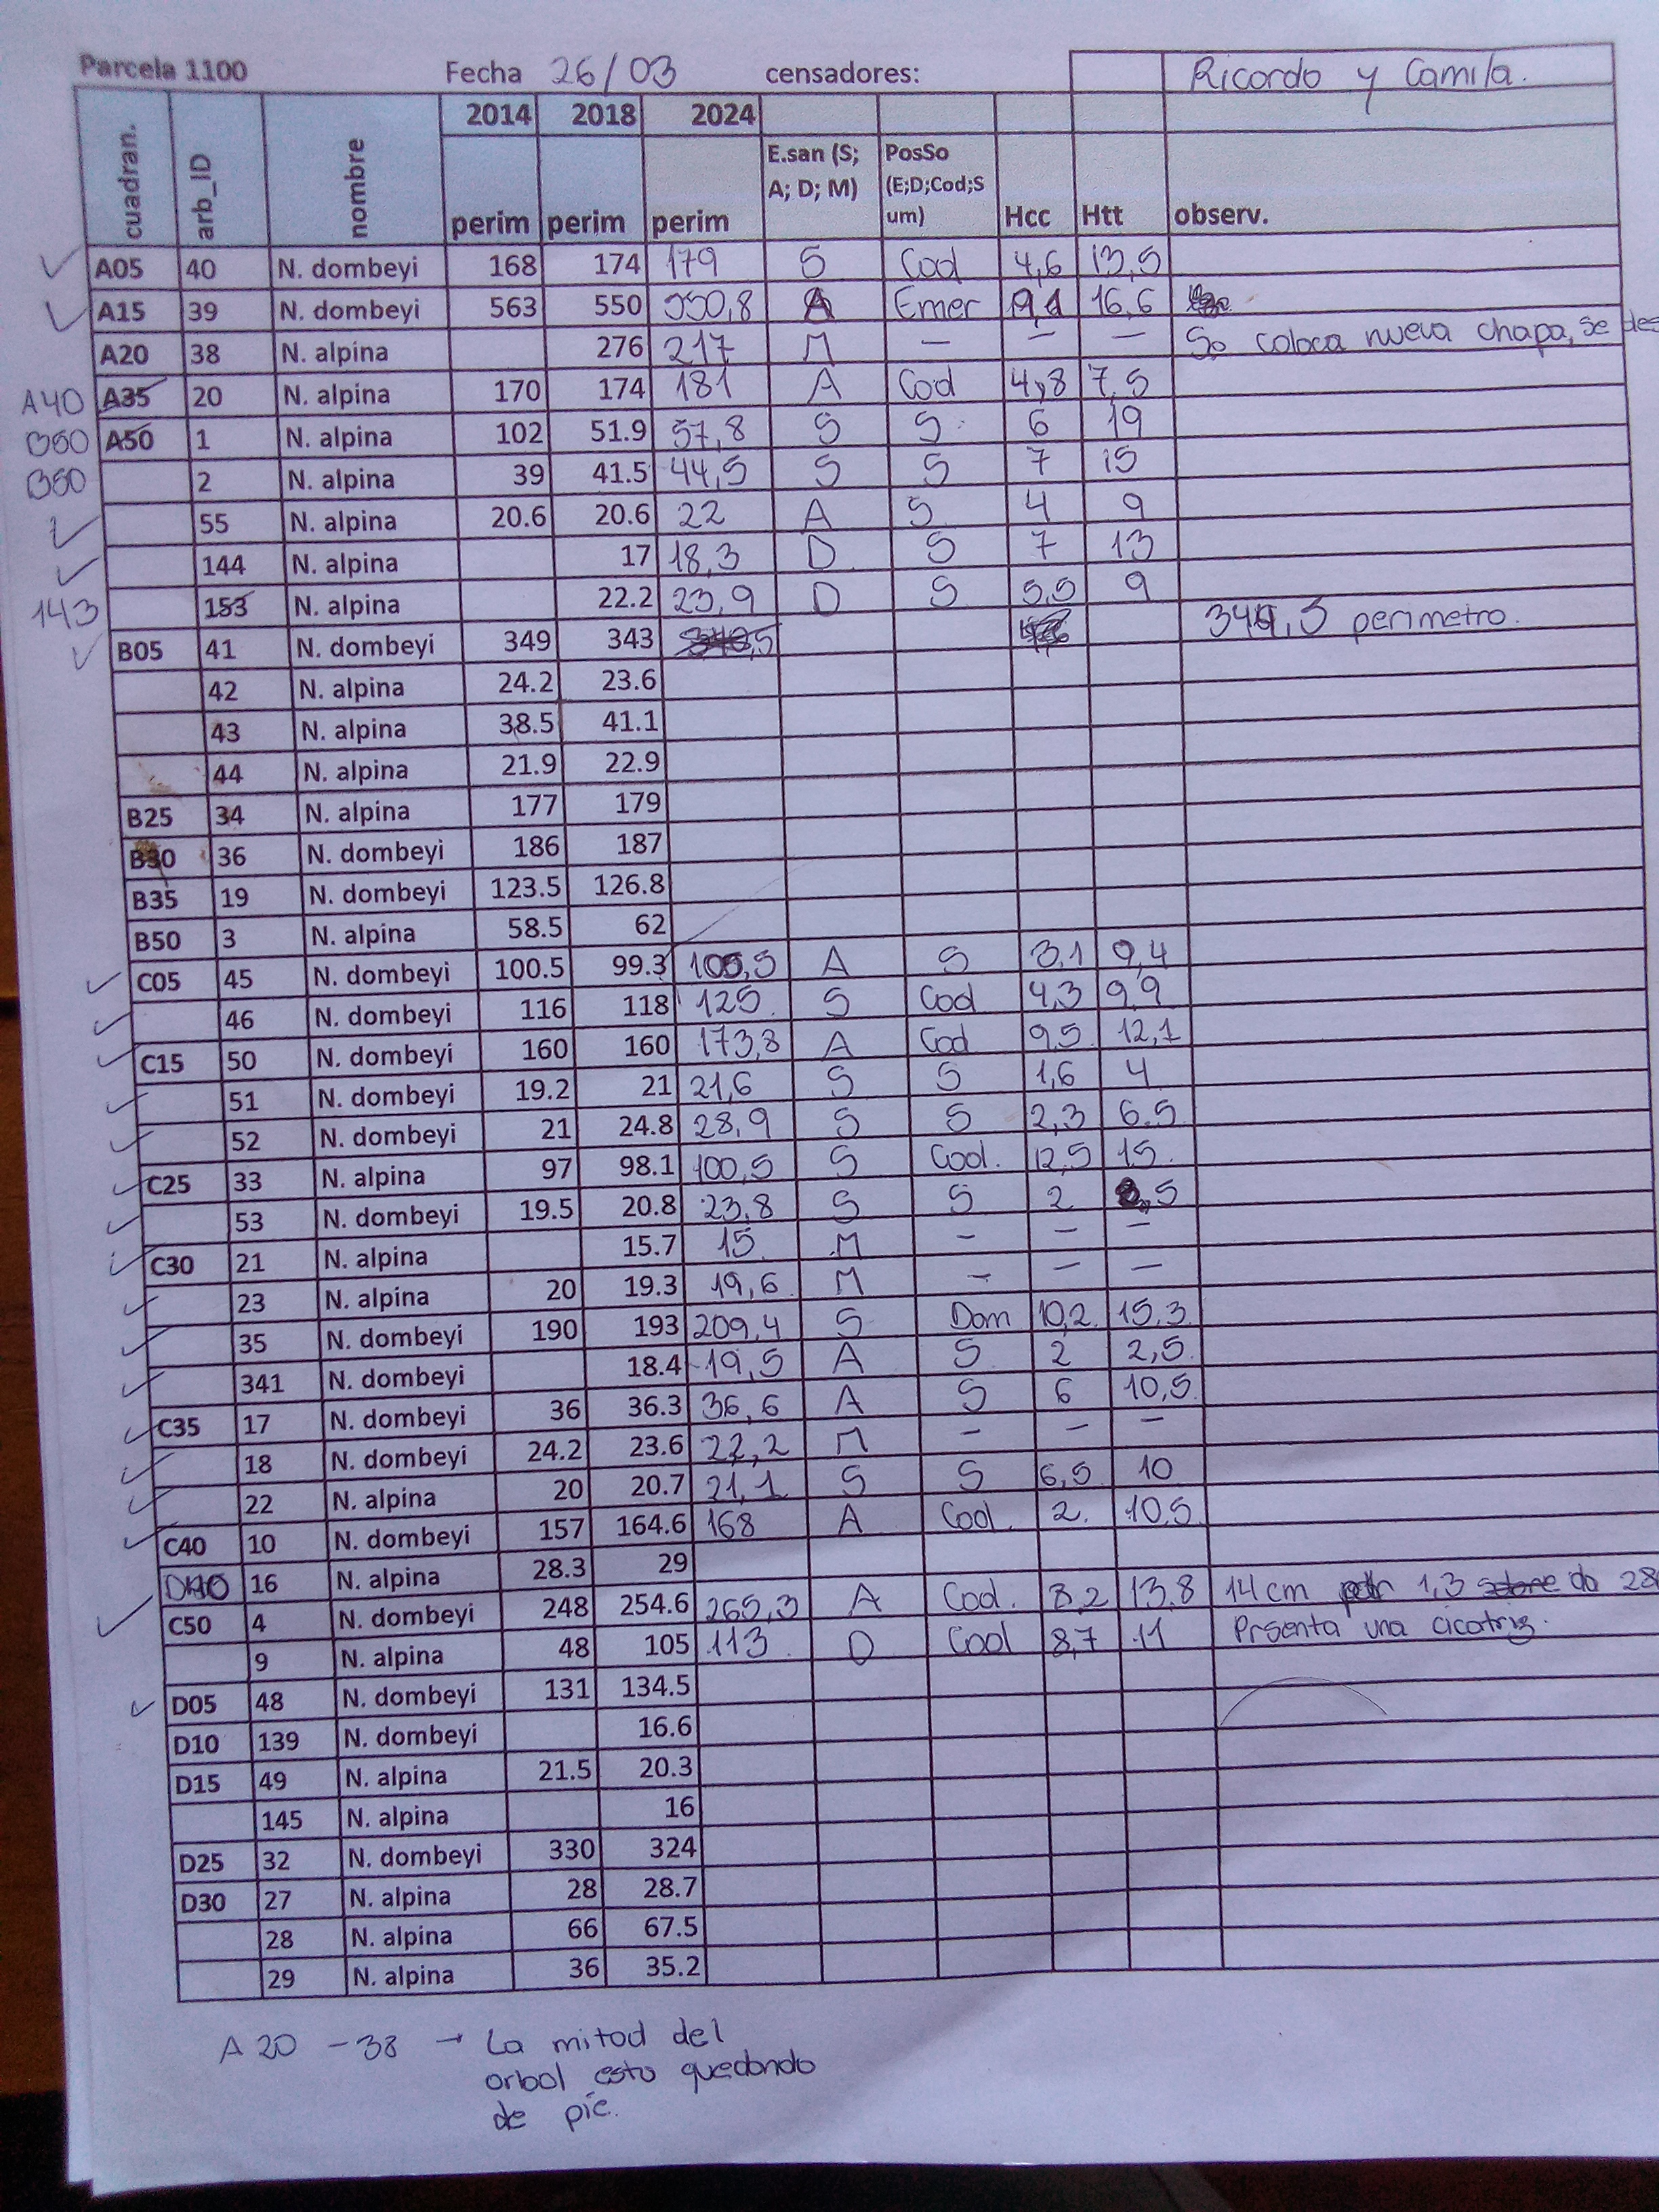 Parcela 1100 Fecha 26/03 censadores: Ricardo y Camila.
2014 2018 2024
cuadran. arb_ID nombre perim perim perim E.san (S; A; D; M) PosSo (E;D;Cod;S um) Hcc Htt observ.
A05 40 N. dombeyi 168 174 179 S Cod 4,6 13,5
A15 39 N. dombeyi 563 550 550,8 A Emer 9,1 16,6
A20 38 N. alpina 276 217 M — — — Se coloca nueva chapa, se des
A40 A35 20 N. alpina 170 174 181 A Cod 4,8 7,5
B50 A50 1 N. alpina 102 51.9 57,8 S S 6 19
B50 2 N. alpina 39 41.5 44,5 S S 7 15
55 N. alpina 20.6 20.6 22 A S 4 9
144 N. alpina 17 18,3 D S 7 13
143 153 N. alpina 22.2 23,9 D S 5,5 9
B05 41 N. dombeyi 349 343 perimetro.
42 N. alpina 24.2 23.6
43 N. alpina 38.5 41.1
44 N. alpina 21.9 22.9
B25 34 N. alpina 177 179
B30 36 N. dombeyi 186 187
B35 19 N. dombeyi 123.5 126.8
B50 3 N. alpina 58.5 62
C05 45 N. dombeyi 100.5 99.3 100,5 A S 3,1 9,4
46 N. dombeyi 116 118 125 S Cod 4,3 9,9
C15 50 N. dombeyi 160 160 173,8 A Cod 9,5 12,1
51 N. dombeyi 19.2 21 21,6 S S 1,6 4
52 N. dombeyi 21 24.8 28,9 S S 2,3 6,5
C25 33 N. alpina 97 98.1 100,5 S Cod. 12,5 15
53 N. dombeyi 19.5 20.8 23,8 S S 2
C30 21 N. alpina 15.7 15 M — — —
23 N. alpina 20 19.3 19,6 M — — —
35 N. dombeyi 190 193 209,4 S Dom 10,2 15,3
341 N. dombeyi 18.4 19,5 A S 2 2,5
C35 17 N. dombeyi 36 36.3 36,6 A S 6 10,5
18 N. dombeyi 24.2 23.6 22,2 M — — —
22 N. alpina 20 20.7 21,1 S S 6,5 10
C40 10 N. dombeyi 157 164.6 168 A Cod. 2. 10,5
16 N. alpina 28.3 29
C50 4 N. dombeyi 248 254.6 265,3 A Cod. 8,2 13,8 14 cm 1,3 do
9 N. alpina 48 105 113 D Cod 8,7 11 Prsenta una cicatriz.
D05 48 N. dombeyi 131 134.5
D10 139 N. dombeyi 16.6
D15 49 N. alpina 21.5 20.3
145 N. alpina 16
D25 32 N. dombeyi 330 324
D30 27 N. alpina 28 28.7
28 N. alpina 66 67.5
29 N. alpina 36 35.2
A20 – 38 → La mitad del
arbol esta quedando
de pie.